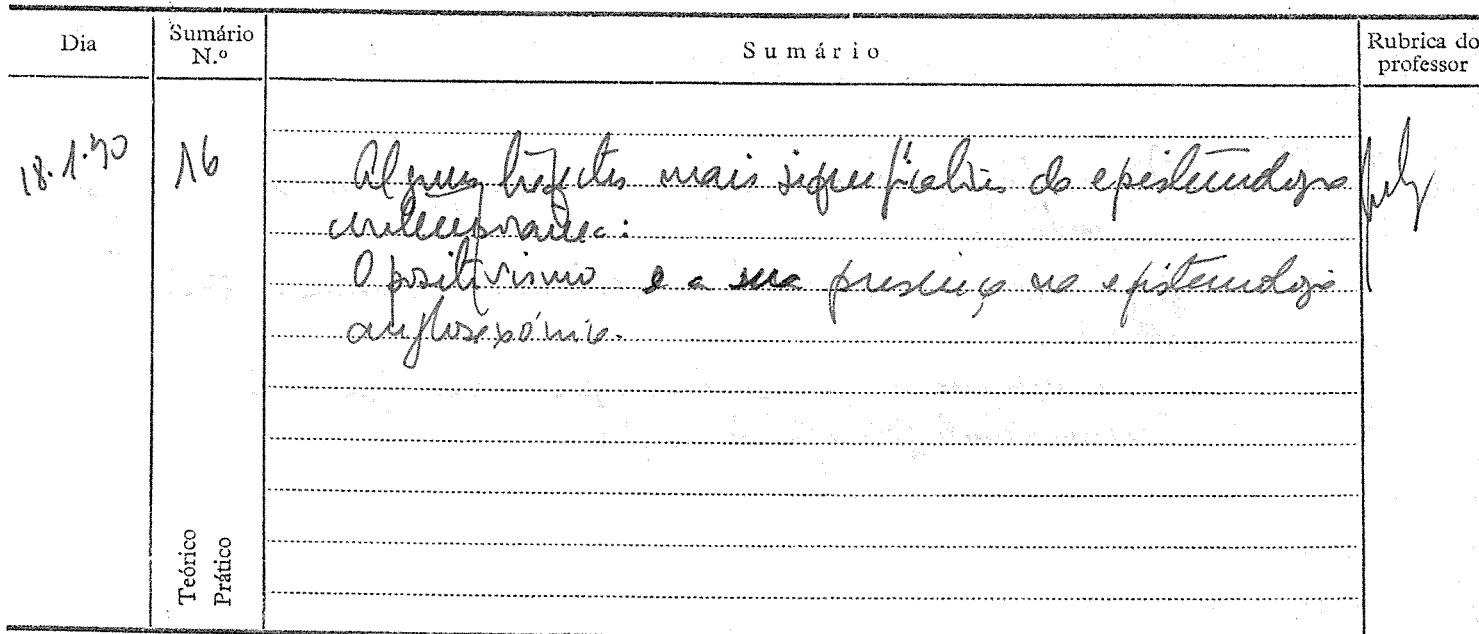 Dia
Sumário N.º
Sumário
Rubrica do professor
18.1.90
16
Algumas mais significativas da epistemologia
contemporânea:
O positivismo e a sua presença na epistemologia
anglosaxónica.
Teórico
Prático